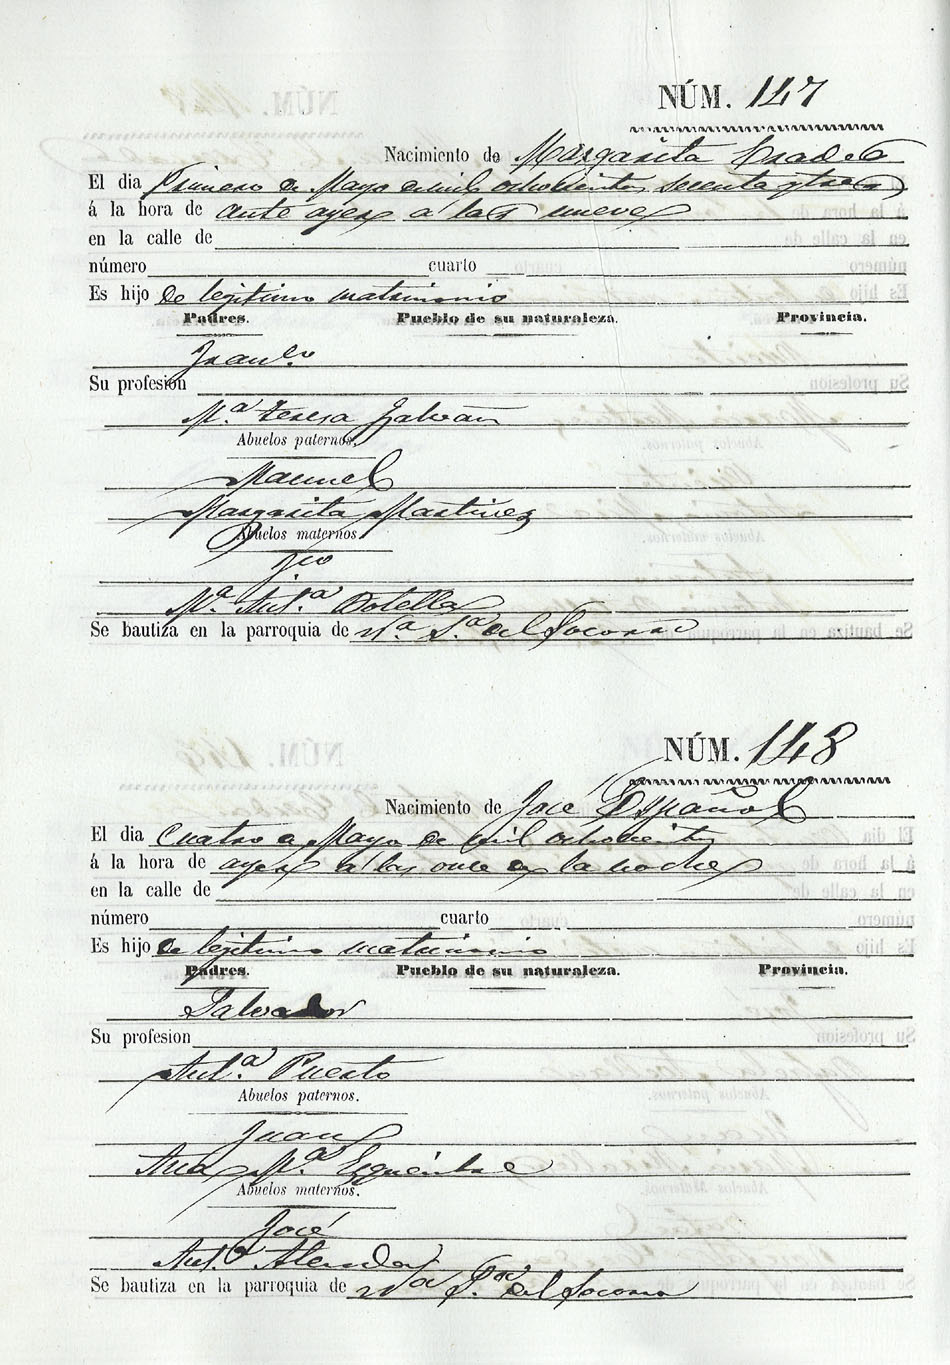 NÚM. 147
Nacimiento de Margarita Pradels
El dia Primero de Mayo de mil ochocientos setenta y tres
á la hora de ante ayer a las nueve
en la calle de
número cuarto
Es hijo de legitimo matrimonio
Padres. Pueblo de su naturaleza. Provincia.
Su profesion
Mª Teresa Galvañ
Abuelos paternos.
Manuel
Margarita Martinez
Abuelos maternos.
Mª. Antª. Botella
Se bautiza en la parroquia de Nª Sª del Socorro
NÚM. 148
Nacimiento de José Español
El dia Cuatro de Mayo de mil ochocientos
á la hora de ayer a las once de la noche
en la calle de
número cuarto
Es hijo de legitimo matrimonio
Padres. Pueblo de su naturaleza. Provincia.
Salvador
Su profesion
Antª. Puerto
Abuelos paternos.
Juan
Ana Mª
Abuelos maternos.
José
Antª
Se bautiza en la parroquia de Nª Sª del Socorro